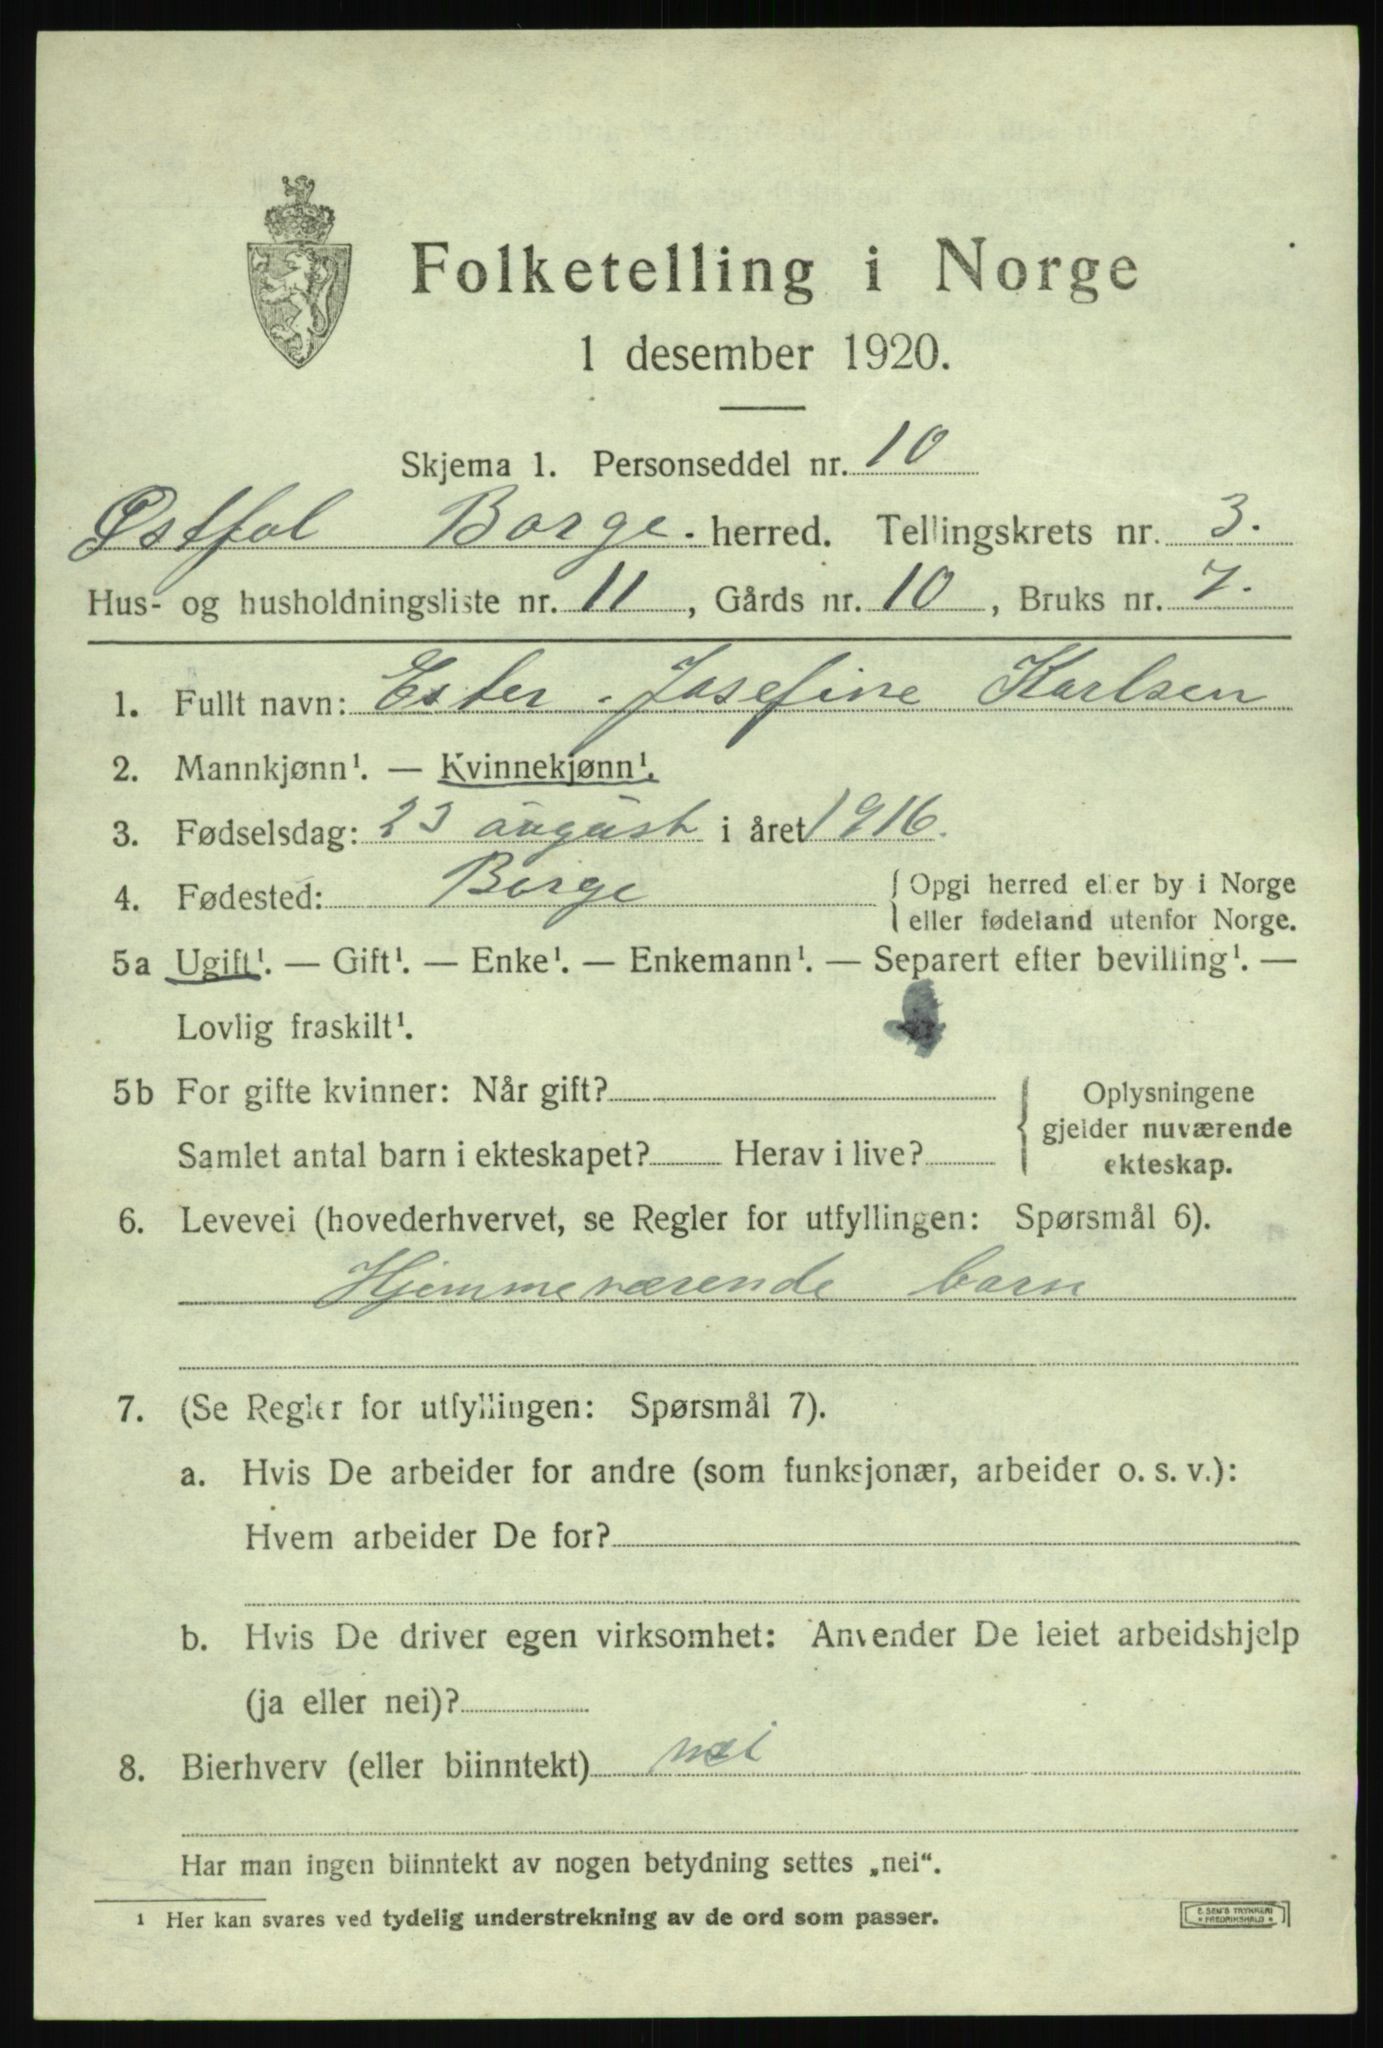 Folketelling i Norge
1 desember 1920.
Skjema 1. Personseddel nr. 10
Østfol Borge. herred. Tellingskrets nr. 3.
Hus- og husholdningsliste nr. 11, Gårds nr. 10, Bruks nr. 7.
1. Fullt navn: Ester Josefine Karlsen
2. Mannkjønn¹. — Kvinnekjønn¹.
3. Fødselsdag: 23 august i året 1916.
4. Fødested: Borge { Opgi herred eller by i Norge
eller fødeland utenfor Norge.
5a Ugift¹. — Gift¹. — Enke¹. — Enkemann¹. — Separert efter bevilling¹. —
Lovlig fraskilt¹.
5b For gifte kvinner: Når gift? { Oplysningene
gjelder nuværende
Samlet antal barn i ekteskapet? Herav i live? ekteskap.
6. Levevei (hovederhvervet, se Regler for utfyllingen: Spørsmål 6).
Hjemmeværende barn
7. (Se Regler for utfyllingen: Spørsmål 7).
a. Hvis De arbeider for andre (som funksjonær, arbeider o. s. v.):
Hvem arbeider De for?
b. Hvis De driver egen virksomhet: Anvender De leiet arbeidshjelp
(ja eller nei)?
8. Bierhverv (eller biinntekt) nei
Har man ingen biinntekt av nogen betydning settes „nei“.
¹ Her kan svares ved tydelig understrekning av de ord som passer.
E. SEM'S TRYKKERI
* FREDRIKSHALD *